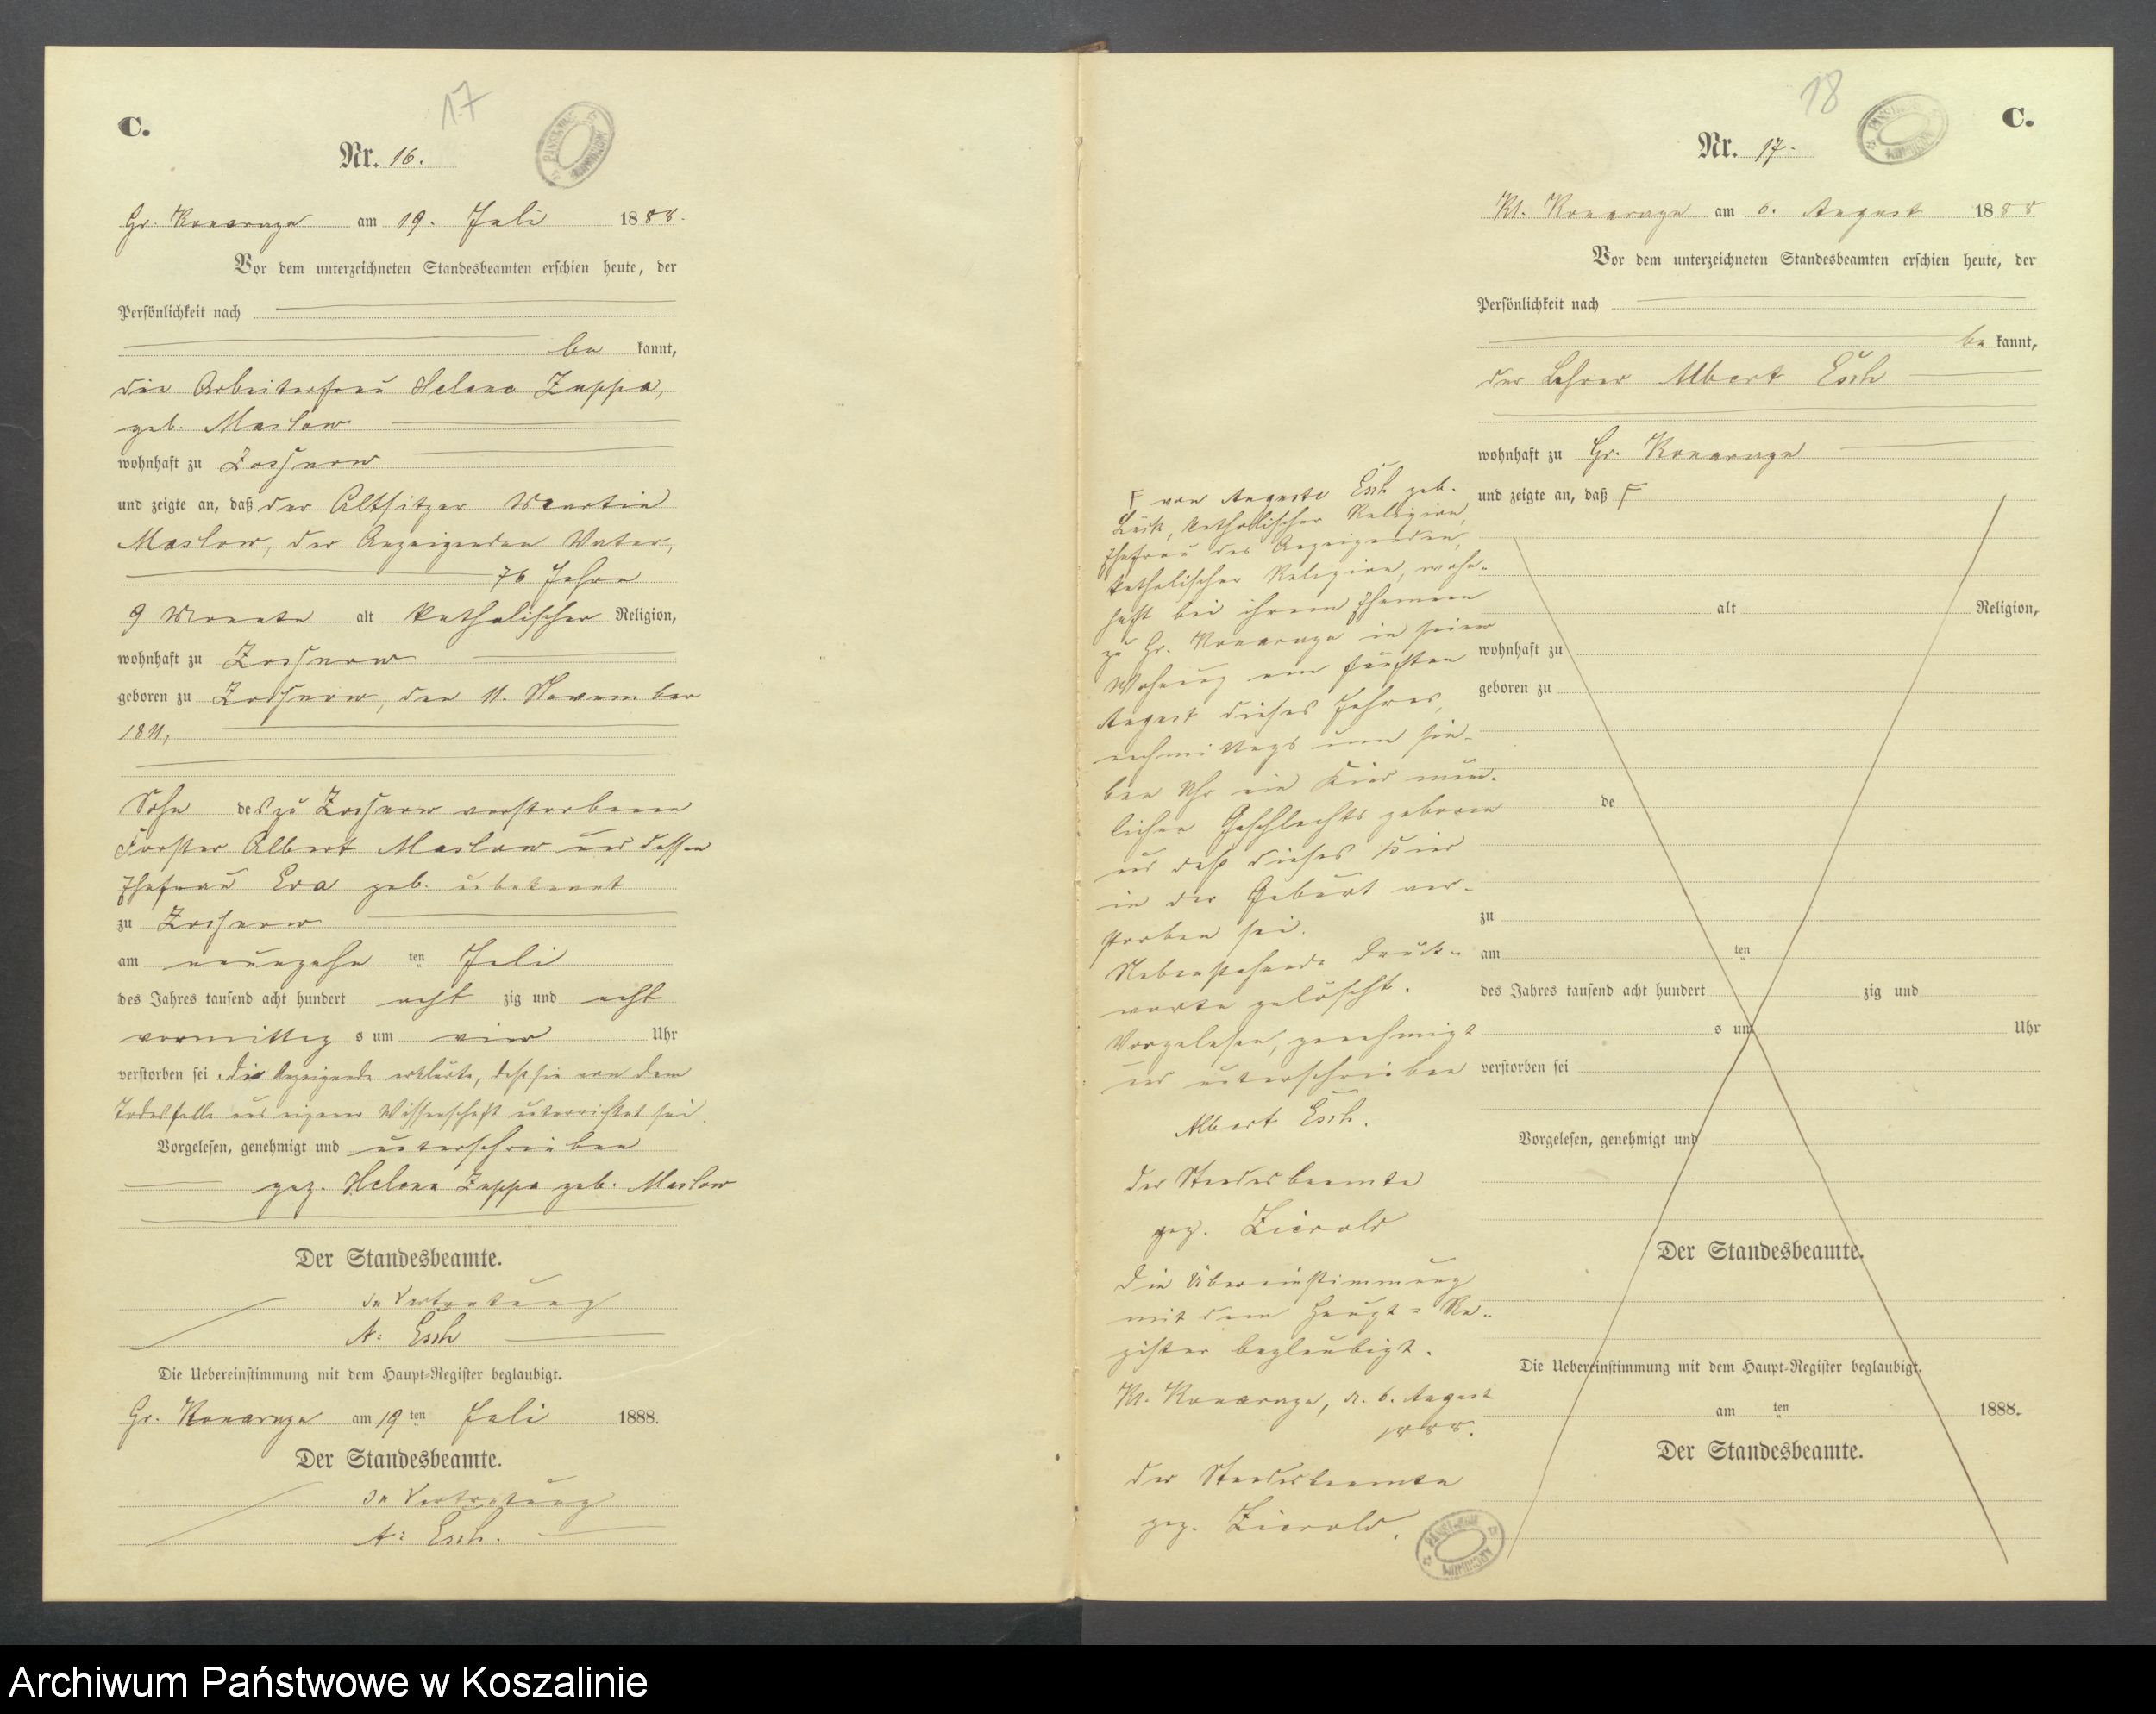 17
C.
Nr. 16.
Gr. Konarzyn am 19. Juli 1888.
Vor dem unterzeichneten Standesbeamten erschien heute, der
Persönlichkeit nach
be kannt,
die Arbeiterfrau Helena Zuppa,
geb. Maslow
wohnhaft zu
und zeigte an, daß der Altsitzer Martin
Maslow, der Anzeigenden Vater,
76 Jahre
9 Monate alt katholischer Religion,
wohnhaft zu
geboren zu den 11. November
1811,
Sohn des zu verstorbenen
Förster Albert Maslow und dessen
Ehefrau Eva geb. unbekannt
zu
am neunzehn ten Juli
des Jahres tausend acht hundert acht zig und acht
vormittag s um vier Uhr
verstorben sei. Die Anzeigende erklärte, daß sie von dem
Todesfalle aus eigener Wissenschaft unterrichtet sei.
Vorgelesen, genehmigt und unterschrieben
gez. Helena Zuppa geb. Maslow
Der Standesbeamte.
In Vertretung
A: Esch
Die Uebereinstimmung mit dem Haupt=Register beglaubigt.
Gr. Konarzyn am 19 ten Juli 1888.
Der Standesbeamte.
In Vertretung
A: Esch.
18
C.
Nr. 17.
Kl. Konarzyn am 6. August 1888
Vor dem unterzeichneten Standesbeamten erschien heute, der
Persönlichkeit nach
be kannt,
der Lehrer Albert Esch
wohnhaft zu Gr. Konarzyn
und zeigte an, daß F
F von Auguste Esch geb.
Lück, katholischer Religion,
Ehefrau des Anzeigenden,
katholischer Religion, wohn-
haft bei ihrem Ehemann
zu Gr. Konarzyn in seiner
Wohnung am fünften
August dieses Jahres,
nachmittags um sie-
ben Uhr ein Kind männ-
lichen Geschlechts geboren
und daß dieses Kind
in der Geburt ver-
storben sei.
Nebenstehende Druck-
worte gelöscht.
Vorgelesen, genehmigt
und unterschrieben
Albert Esch.
Der Standesbeamte
gez. Zierold
Die Übereinstimmung
mit dem Haupt=Re-
gister beglaubigt.
Kl. Konarzyn, d. 6. August
1888.
Der Standesbeamte
gez. Zierold.
alt Religion,
wohnhaft zu
geboren zu
de
zu
am ten
des Jahres tausend acht hundert zig und
s um Uhr
verstorben sei
Vorgelesen, genehmigt und
Der Standesbeamte.
Die Uebereinstimmung mit dem Haupt=Register beglaubigt.
am ten 1888.
Der Standesbeamte.
Archiwum Państwowe w Koszalinie